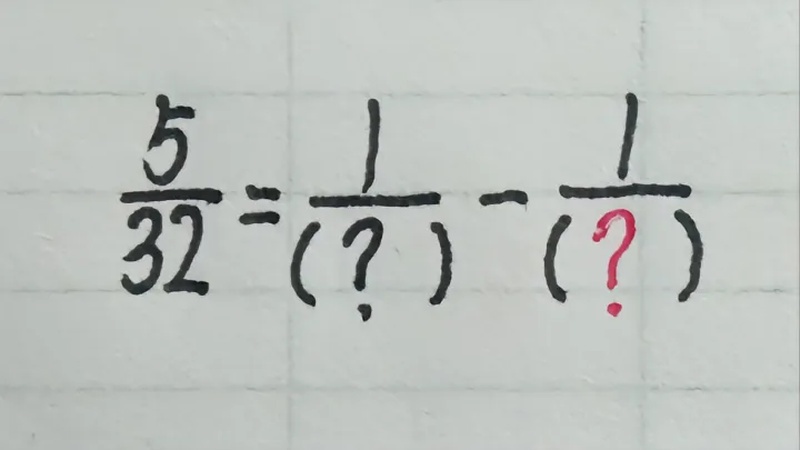 5/32 = 1/(?) - 1/(?)